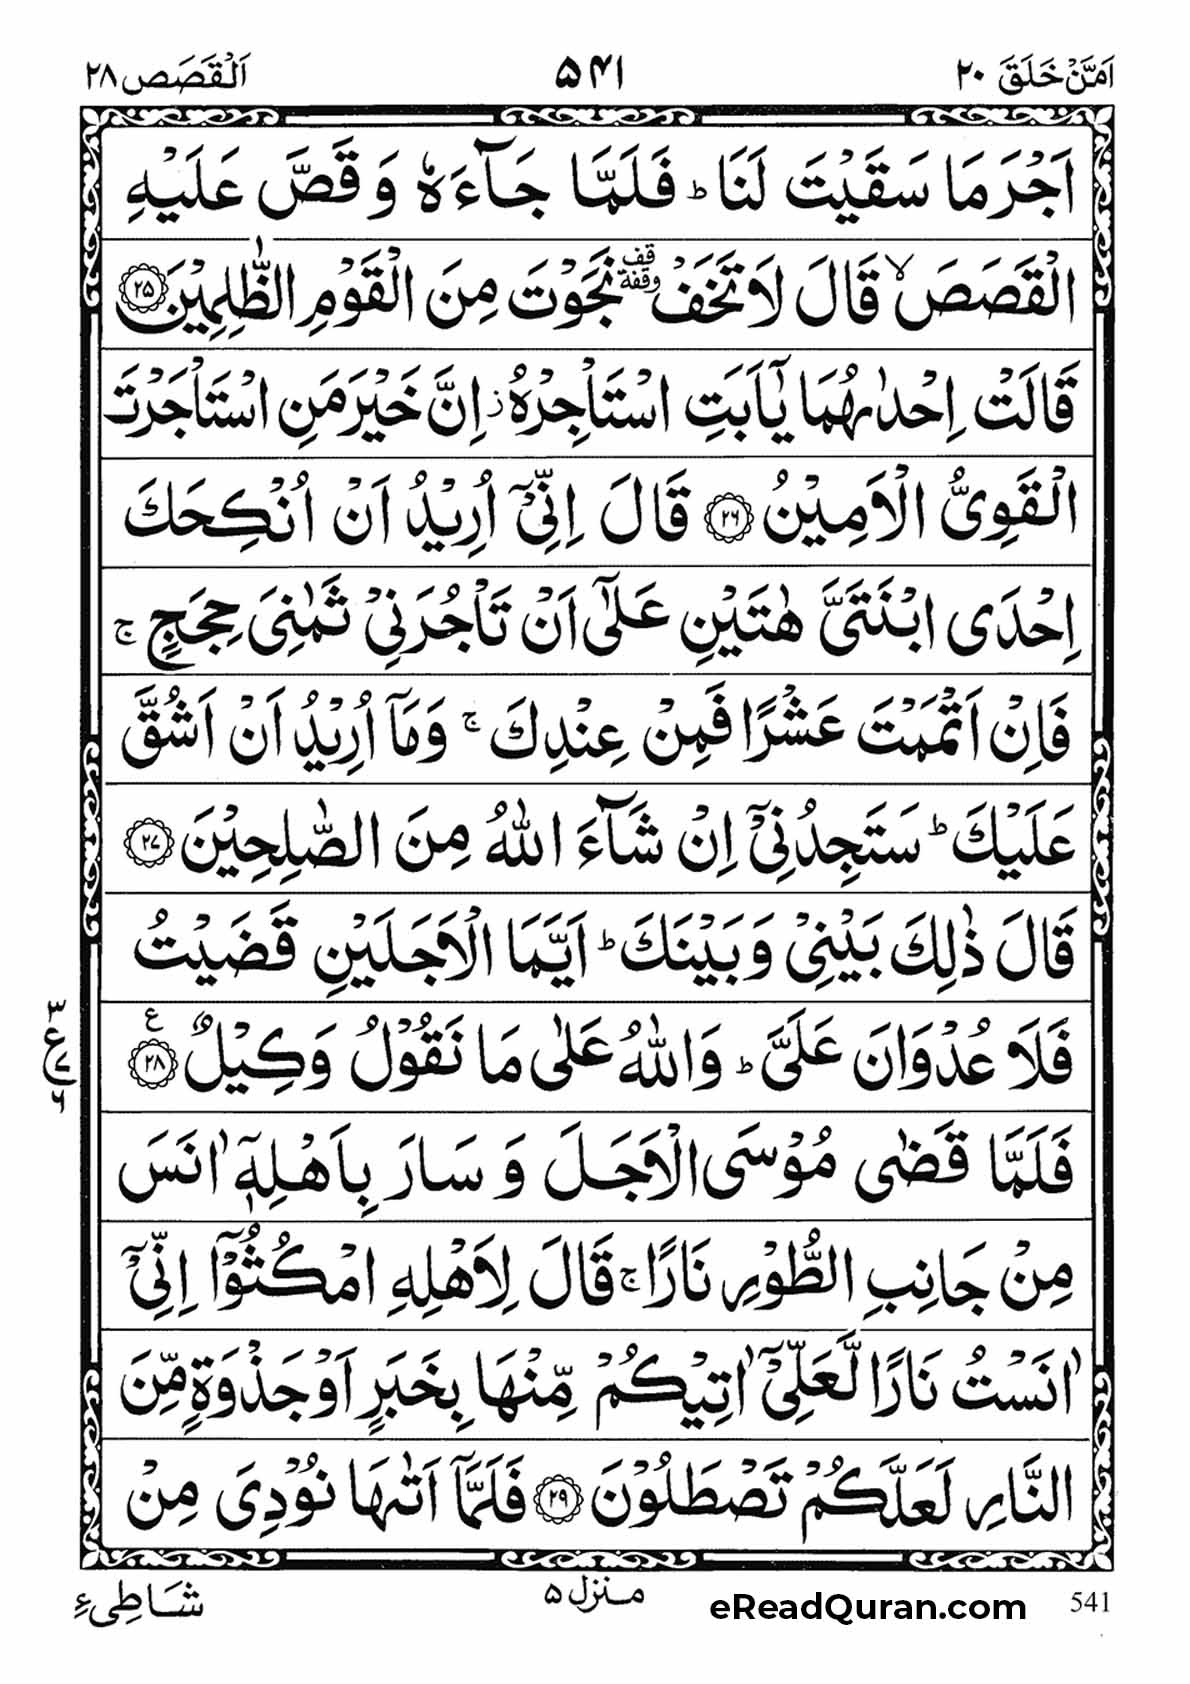 اَمَّنْ خَلَقَ ۲۰
۵۴۱
اَلْقَصَص ۲۸
اَجْرَ مَا سَقَيْتَ لَنَا ؕ فَلَمَّا جَآءَهٗ وَ قَصَّ عَلَيْهِ
الْقَصَصَ ۙ قَالَ لَا تَخَفْ ۥقف وقفة نَجَوْتَ مِنَ الْقَوْمِ الظّٰلِمِيْنَ ۲۵
قَالَتْ اِحْدٰىهُمَا يٰۤاَبَتِ اسْتَاْجِرْهُ ؗ اِنَّ خَيْرَ مَنِ اسْتَاْجَرْتَ
الْقَوِيُّ الْاَمِيْنُ ۲۶ قَالَ اِنِّيْۤ اُرِيْدُ اَنْ اُنْكِحَكَ
اِحْدَى ابْنَتَيَّ هٰتَيْنِ عَلٰۤى اَنْ تَاْجُرَنِيْ ثَمٰنِيَ حِجَجٍ ۚ
فَاِنْ اَتْمَمْتَ عَشْرًا فَمِنْ عِنْدِكَ ۚ وَمَاۤ اُرِيْدُ اَنْ اَشُقَّ
عَلَيْكَ ؕ سَتَجِدُنِيْۤ اِنْ شَآءَ اللّٰهُ مِنَ الصّٰلِحِيْنَ ۲۷
قَالَ ذٰلِكَ بَيْنِيْ وَبَيْنَكَ ؕ اَيَّمَا الْاَجَلَيْنِ قَضَيْتُ
فَلَا عُدْوَانَ عَلَيَّ ؕ وَاللّٰهُ عَلٰى مَا نَقُوْلُ وَكِيْلٌ ۲۸ ع
۳ ع ۷ ۶
فَلَمَّا قَضٰى مُوْسَى الْاَجَلَ وَ سَارَ بِاَهْلِهٖۤ اٰنَسَ
مِنْ جَانِبِ الطُّوْرِ نَارًا ۚ قَالَ لِاَهْلِهِ امْكُثُوْۤا اِنِّيْۤ
اٰنَسْتُ نَارًا لَّعَلِّيْۤ اٰتِيْكُمْ مِّنْهَا بِخَبَرٍ اَوْ جَذْوَةٍ مِّنَ
النَّارِ لَعَلَّكُمْ تَصْطَلُوْنَ ۲۹ فَلَمَّاۤ اَتٰىهَا نُوْدِيَ مِنْ
541
eReadQuran.com
منزل ۵
شاطیٔ